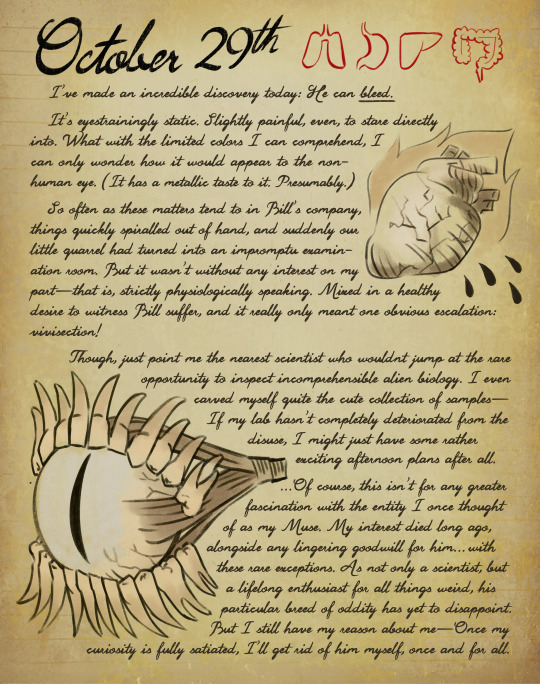 October 29th
I've made an incredible discovery today: He can bleed.
It's eyestrainingly static. Slightly painful, even, to stare directly
into. What with the limited colors I can comprehend, I
can only wonder how it would appear to the non-
human eye. (It has a metallic taste to it. Presumably.)
So often as these matters tend to in Bill's company,
things quickly spiralled out of hand, and suddenly our
little quarrel had turned into an impromptu examin-
ation room. But it wasn't without any interest on my
part—that is, strictly physiologically speaking. Mixed in a healthy
desire to witness Bill suffer, and it really only meant one obvious escalation:
vivisection!
Though, just point me the nearest scientist who wouldnt jump at the rare
opportunity to inspect incomprehensible alien biology. I even
carved myself quite the cute collection of samples—
If my lab hasn't completely deteriorated from the
disuse, I might just have some rather
exciting afternoon plans after all.
...Of course, this isn't for any greater
fascination with the entity I once thought
of as my Muse. My interest died long ago,
alongside any lingering goodwill for him...with
these rare exceptions. As not only a scientist, but
a lifelong enthusiast for all things weird, his
particular breed of oddity has yet to disappoint.
But I still have my reason about me—Once my
curiosity is fully satiated, I'll get rid of him myself, once and for all.